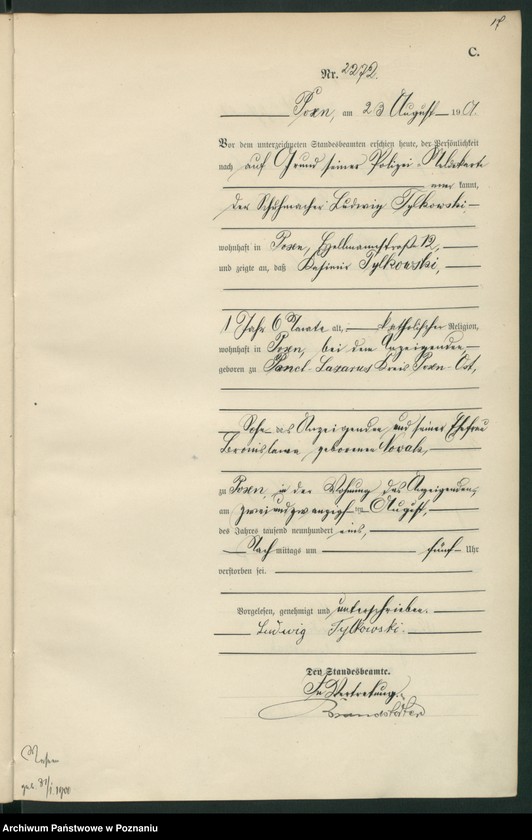 17
C.
Nr. 2272.
Posen, am 23 August 1901.
Vor dem unterzeichneten Standesbeamten erschien heute, der Persönlichkeit
nach auf Grund seiner Polizei-Meldekarte
kannt,
der Schuhmacher Ludwig Tylkowski,
wohnhaft in Posen, 12,
und zeigte an, daß Kasimir Tylkowski,
1 Jahr 6 Monate alt, katholischer Religion,
wohnhaft in Posen, bei dem Anzeigenden
geboren zu Sanct-Lazarus Kreis Posen-Ost,
Sohn des Anzeigenden und seiner Ehefrau
Bronislawa geborenen Nowak,
zu Posen, in der Wohnung des Anzeigenden,
am zweiundzwanzigsten August,
des Jahres tausend neunhundert eins,
Nach mittags um fünf Uhr
verstorben sei.
Vorgelesen, genehmigt und unterschrieben.
Ludwig Tylkowski.
Der Standesbeamte.
In Vertretung.
Posen
geb. 31/1. 1900
Archiwum Państwowe w Poznaniu